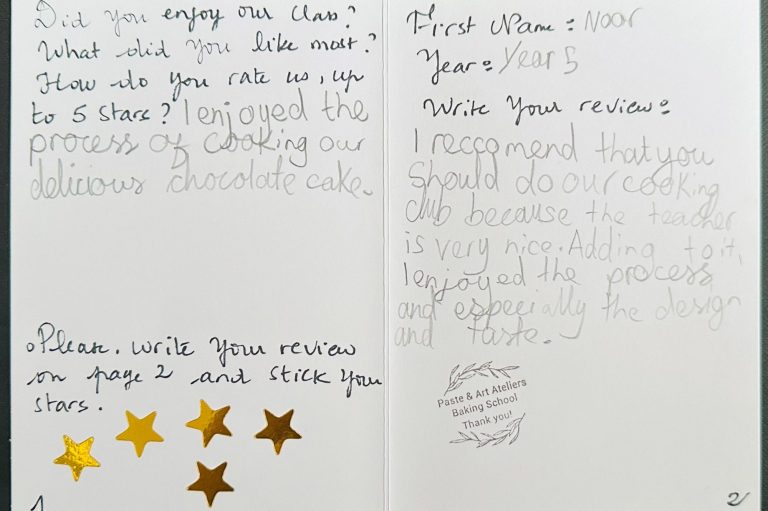 Did you enjoy our class?
What did you like most?
How do you rate us, up
to 5 stars? I enjoyed the
process of cooking our
delicious chocolate cake.
Please. write your review
on page 2 and stick your
stars.
1
First Name: Noor
Year: Year 5
Write your review:
I reccomend that you
should do our cooking
club because the teacher
is very nice. Adding to it,
I enjoyed the process
and especially the design
and taste.
Paste & Art Ateliers
Baking School
Thank you!
2